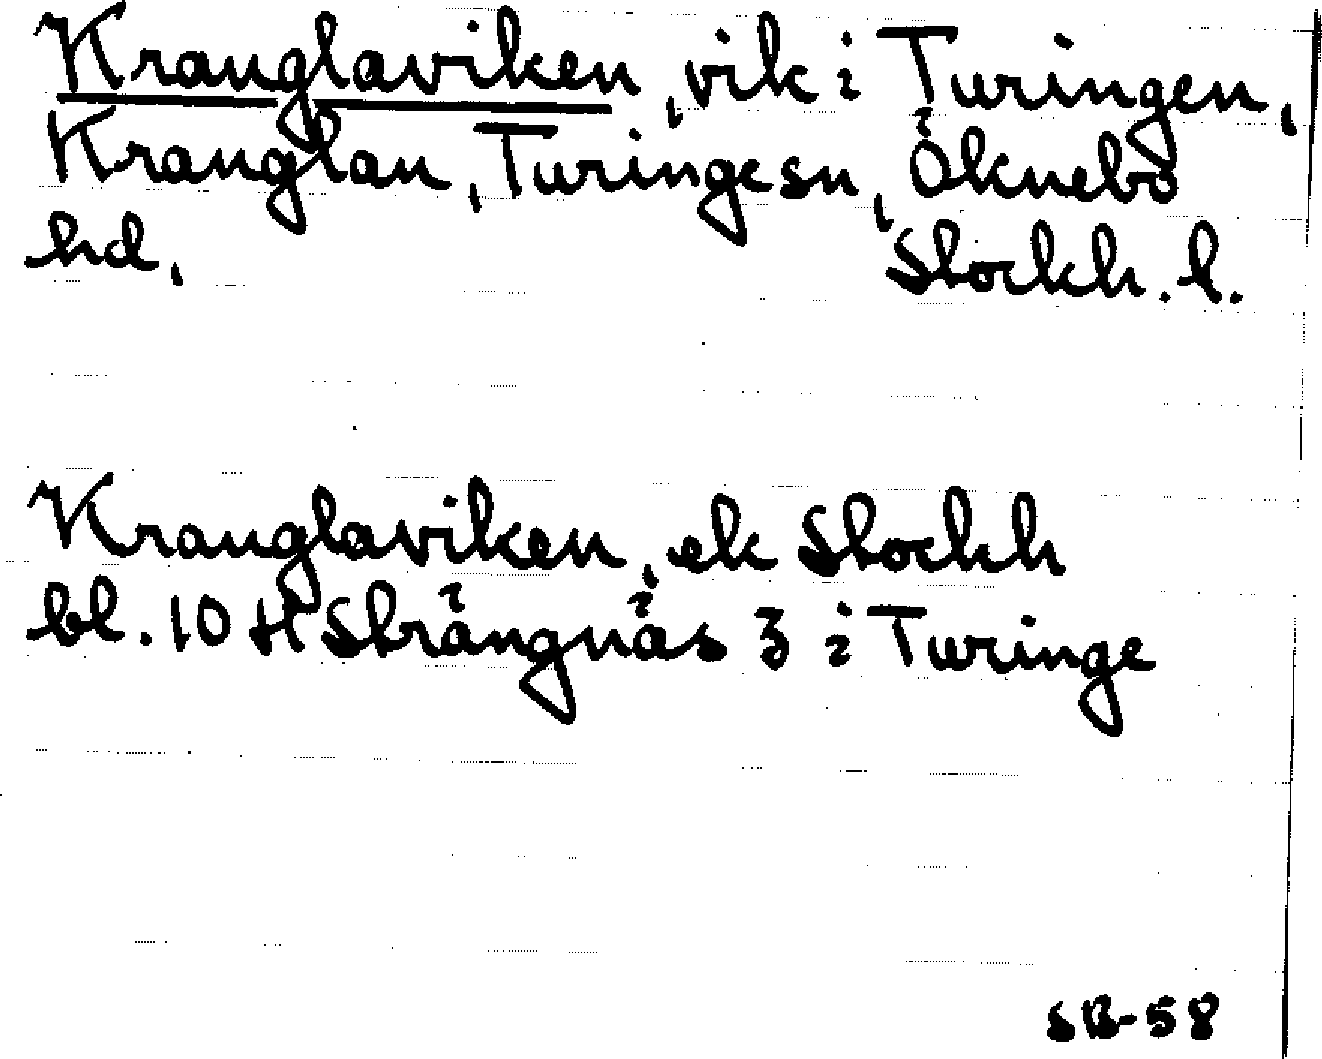 Kranglaviken, vik i Turingen,
Kranglan, Turinge sn, Öknebo
hd, Stockh. l.
Kranglaviken, ek Stockh
bl. 10 H Strängnäs 3 i Turinge
SB-58